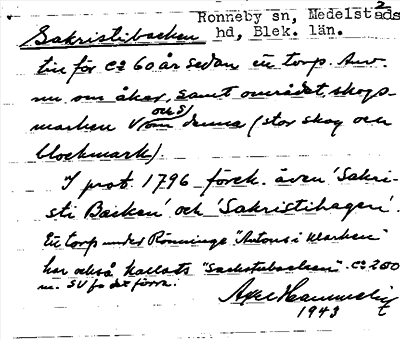 Ronneby sn, Medelstads
2
Sakristibacken hd, Blek. län.
till för c:a 60 år sedan ett torp. Anv.
nu om åker, samt området skogs-
marken V om denna (stor skog och
och S
blockmark).
I prot. 1796 förek. även 'Sakri-
sti Backen' och 'Sakristihagen'.
Ett torp under Rönninge "Antons i Marken"
har också kallats "Sackstubacken" c:a 200
m. SV fr det förra.
Axel
1943